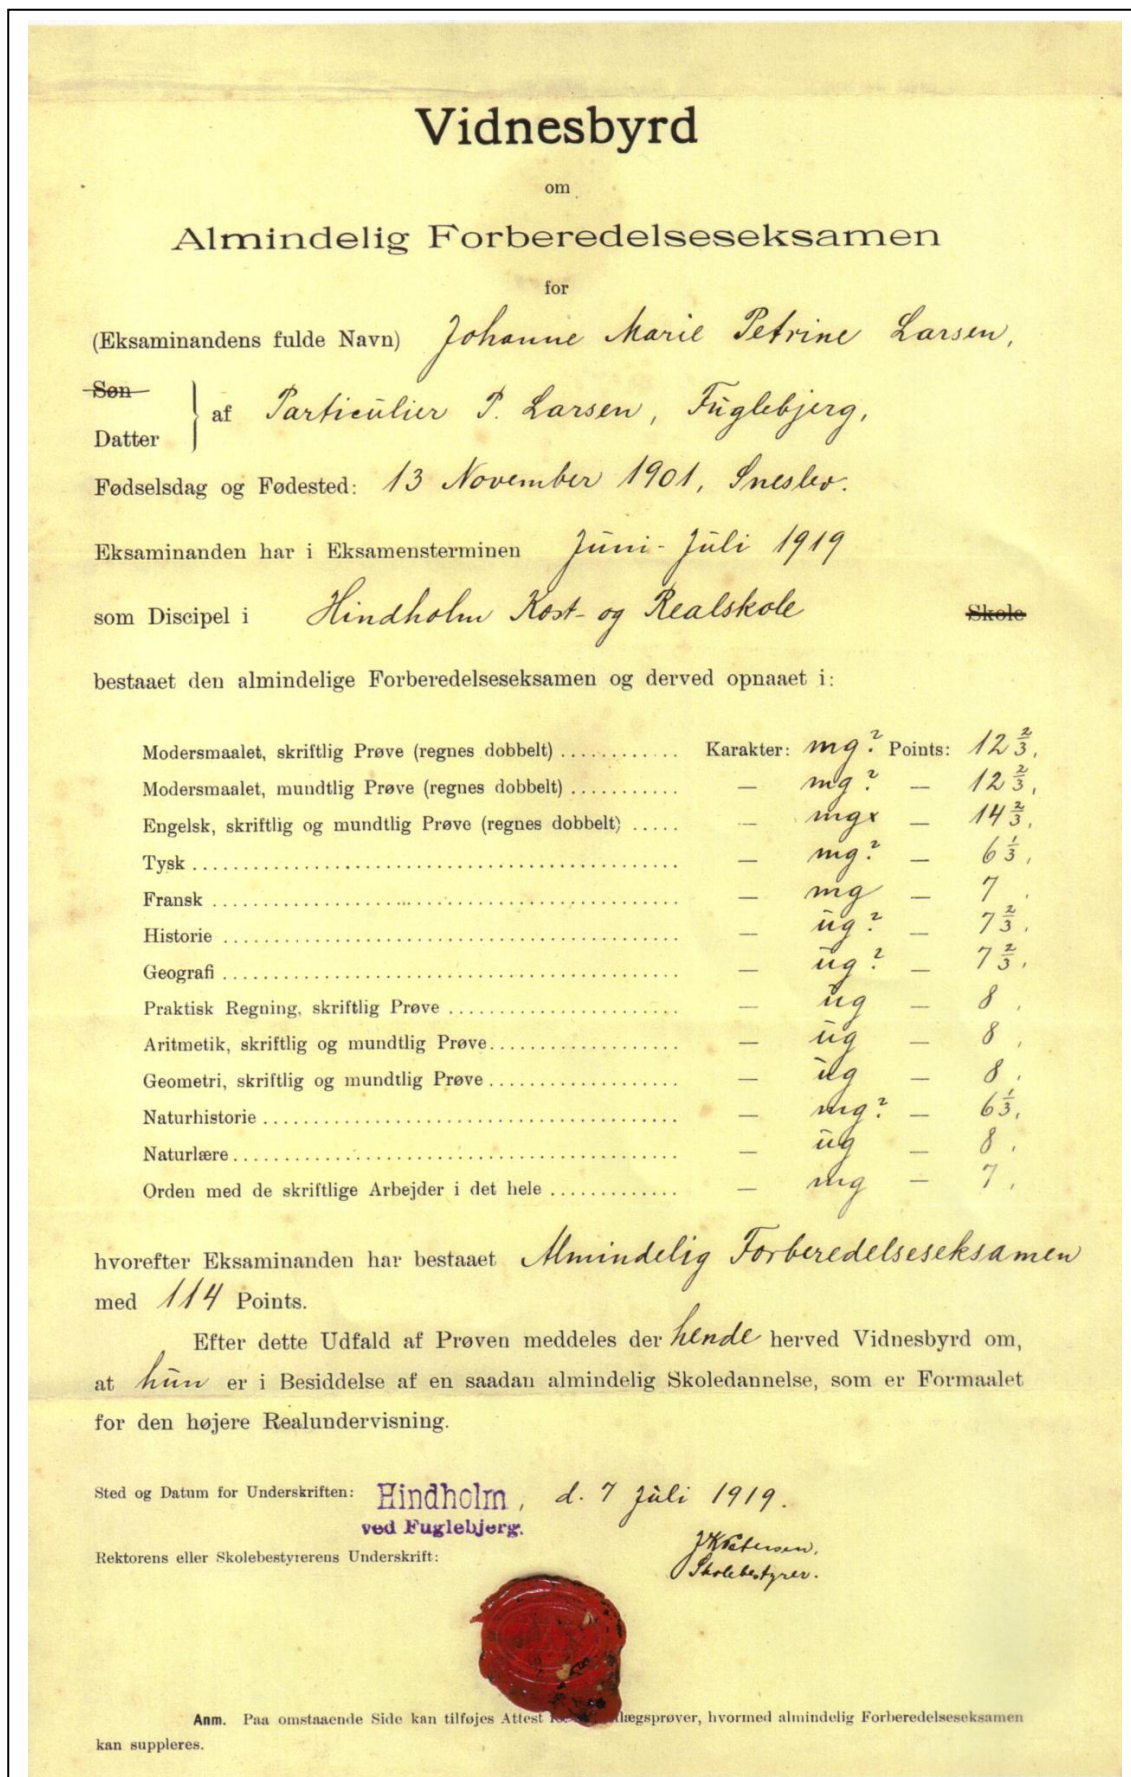 Vidnesbyrd
om
Almindelig Forberedelseseksamen
for
(Eksaminandens fulde Navn) Johanne Marie Petrine Larsen,
Søn
Datter } af Particulier P. Larsen, Fuglebjerg,
Fødselsdag og Fødested: 13 November 1901, Sneslev.
Eksaminanden har i Eksamensterminen Juni - Juli 1919
som Discipel i Hindholm Kost- og Realskole Skole
bestaaet den almindelige Forberedelseseksamen og derved opnaaet i:
Modersmaalet, skriftlig Prøve (regnes dobbelt) ............ Karakter: mg? Points: 12 2/3,
Modersmaalet, mundtlig Prøve (regnes dobbelt) ........... — mg? — 12 2/3,
Engelsk, skriftlig og mundtlig Prøve (regnes dobbelt) ..... — mgx — 14 2/3,
Tysk ................................................ — mg? — 6 1/3,
Fransk .............................................. — mg — 7.
Historie ............................................ — ug? — 7 2/3,
Geografi ............................................ — ug? — 7 2/3,
Praktisk Regning, skriftlig Prøve ....................... — ug — 8,
Aritmetik, skriftlig og mundtlig Prøve................... — ug — 8,
Geometri, skriftlig og mundtlig Prøve ................... — ug — 8.
Naturhistorie ......................................... — mg? — 6 1/3,
Naturlære............................................ — ug — 8.
Orden med de skriftlige Arbejder i det hele ............. — mg — 7,
hvorefter Eksaminanden har bestaaet Almindelig Forberedelseseksamen
med 114 Points.
Efter dette Udfald af Prøven meddeles der hende herved Vidnesbyrd om,
at hun er i Besiddelse af en saadan almindelig Skoledannelse, som er Formaalet
for den højere Realundervisning.
Sted og Datum for Underskriften: Hindholm, d. 7 Juli 1919.
ved Fuglebjerg.
Rektorens eller Skolebestyrerens Underskrift: JKPetersen.
Skolebestyrer.
Anm. Paa omstaaende Side kan tilføjes Attest lægsprøver, hvormed almindelig Forberedelseseksamen
kan suppleres.